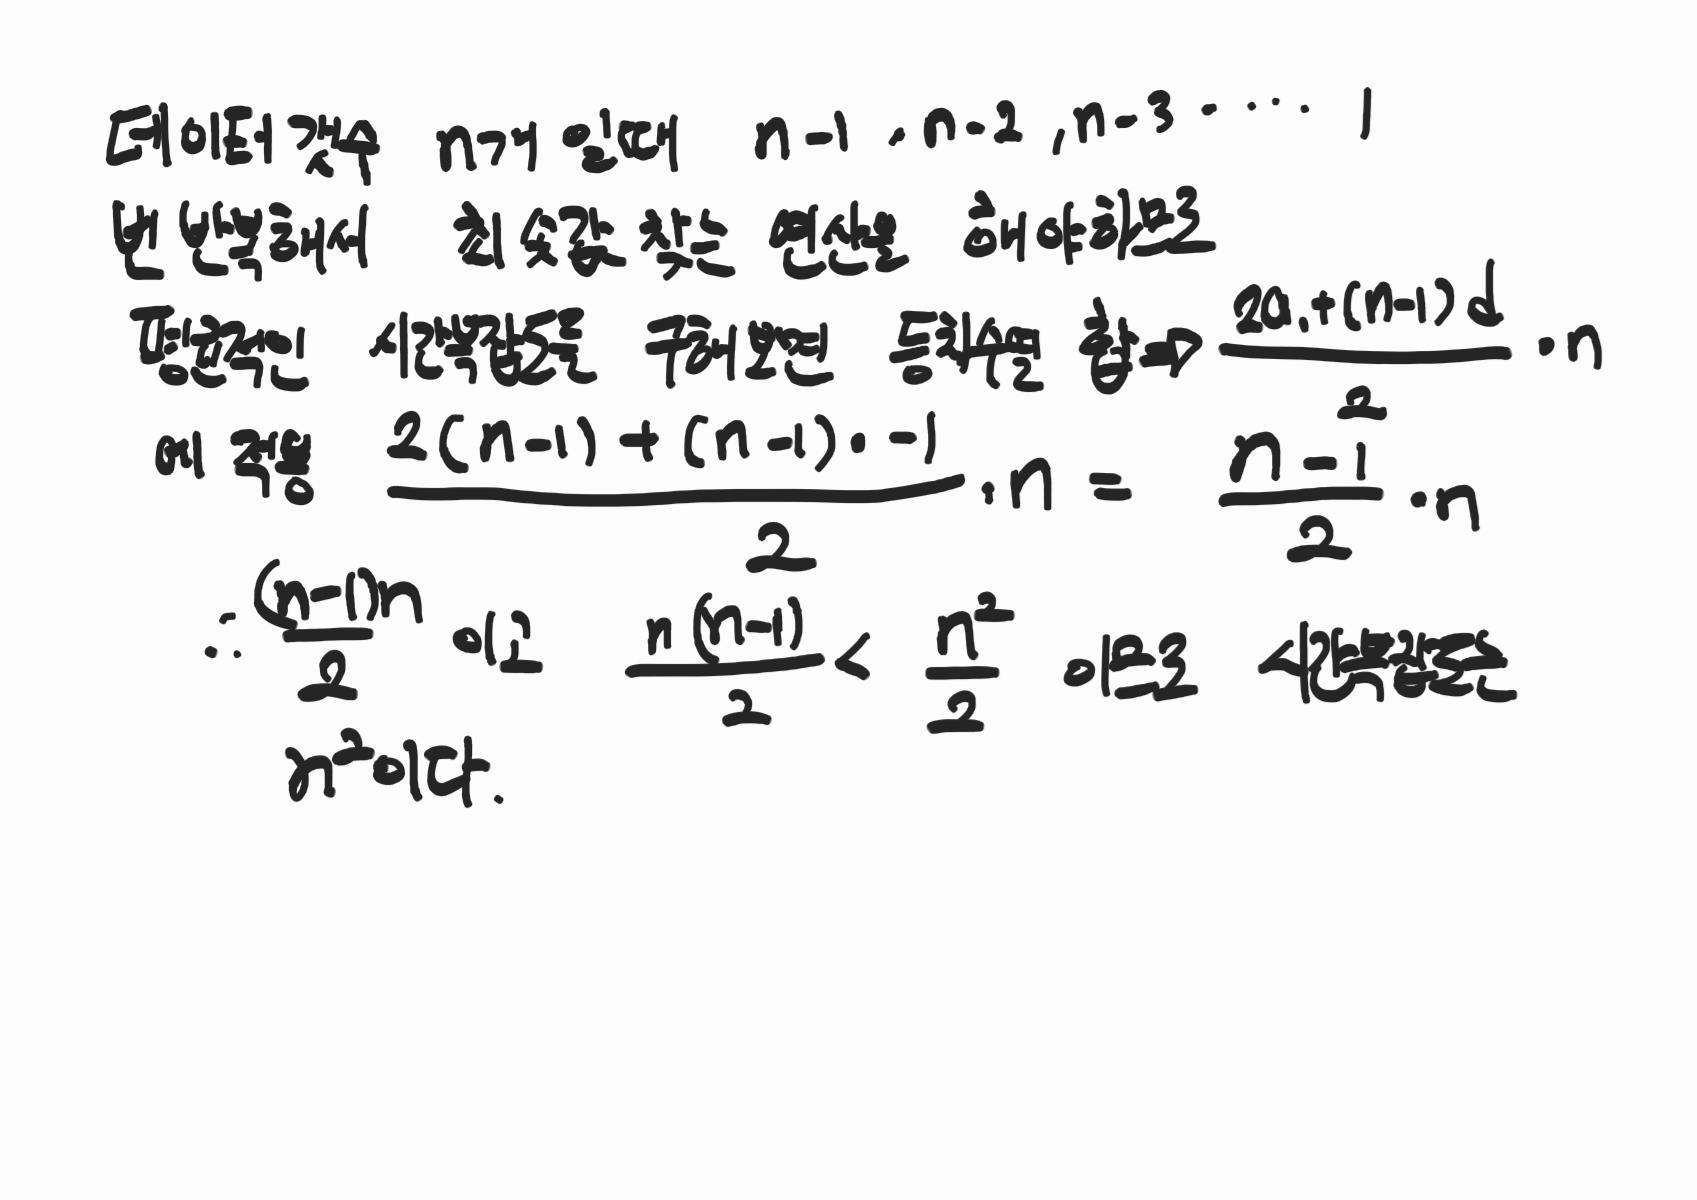 데이터 갯수 n개 일때 n-1 , n-2 , n-3 ····· 1
번 반복해서 최솟값 찾는 연산을 해야하므로
평균적인 시간복잡도를 구해보면 등차수열 합 ⇒ (2a₁+(n-1)d)/2 · n
에 적용 (2(n-1)+(n-1)·-1)/2 · n = (n-1)/2 · n
∴ (n-1)n/2 이고 n(n-1)/2 < n²/2 이므로 시간복잡도는
n²이다.